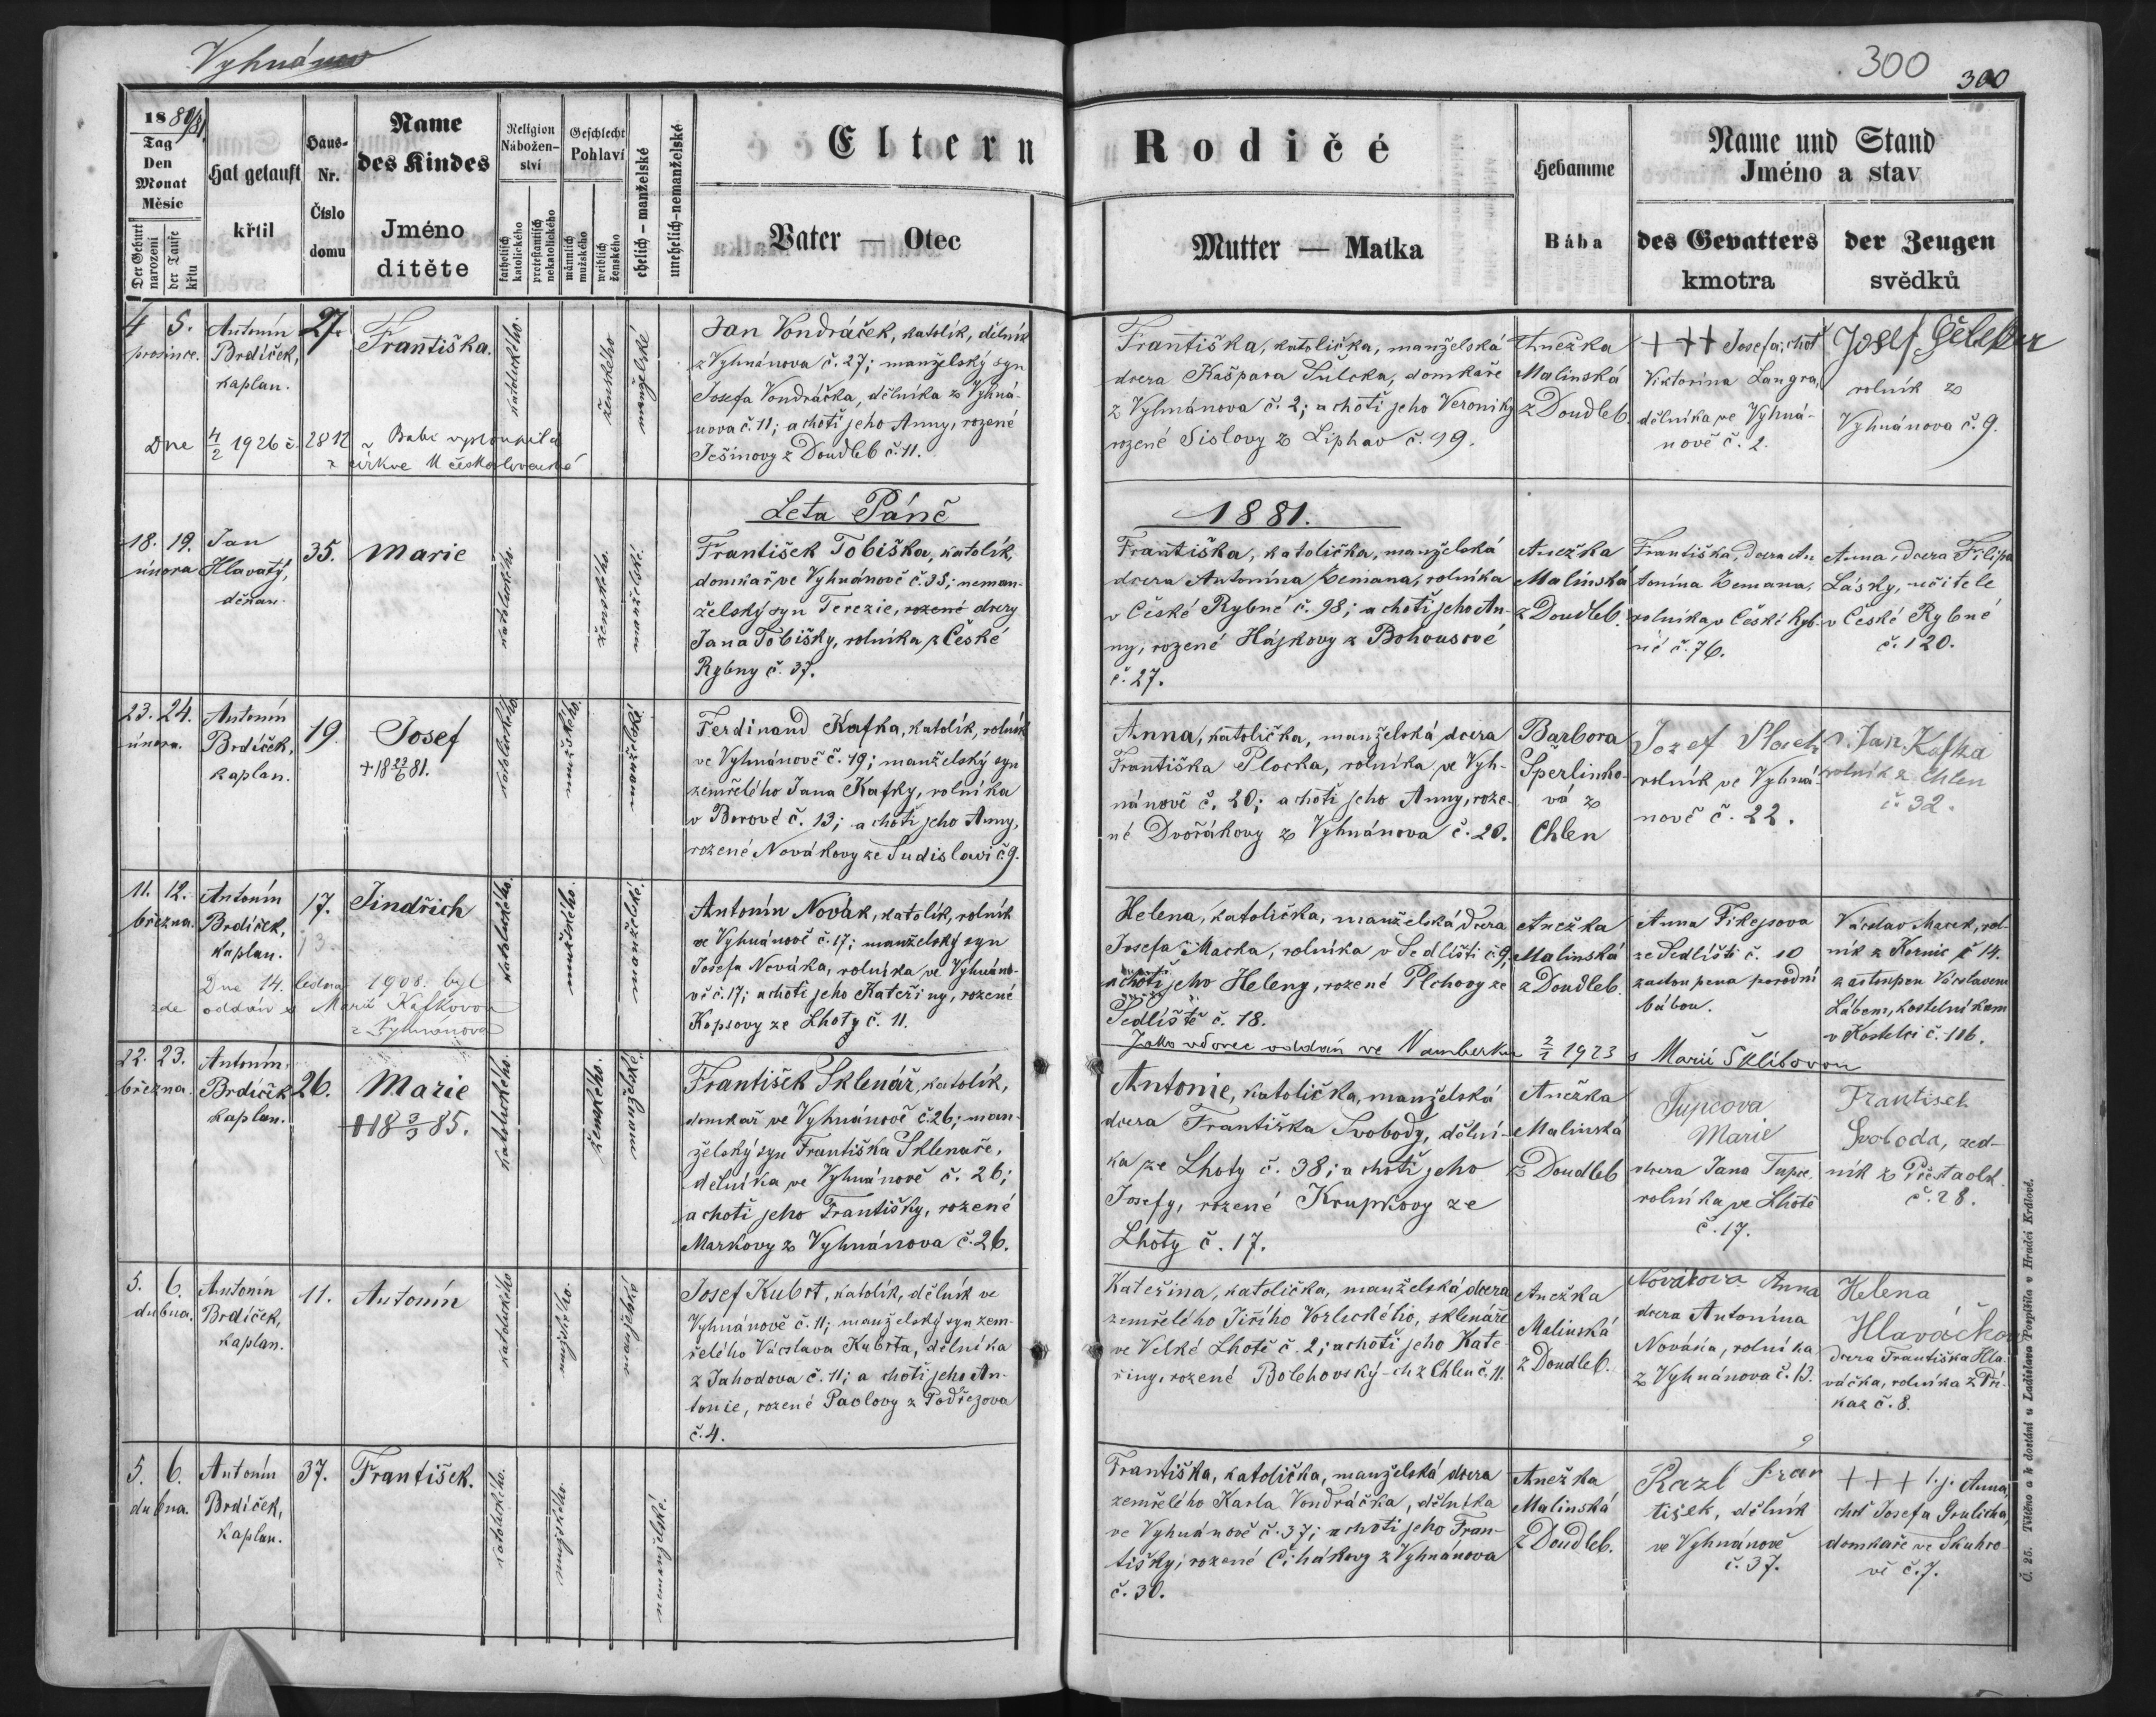 Vyhnánov
300
300
1880/81
Tag
Den
Monat
Měsíc
Der Geburt
narození
der Taufe
křtu
Hat getauft
křtil
Haus-
Nr.
Číslo
domu
Name
des Kindes
Jméno
dítěte
Religion
Nábožen-
ství
katholisch
katolického
protestantisch
nekatolického
Geschlecht
Pohlaví
männlich
mužského
weiblich
ženského
ehelich - manželské
unehelich-nemanželské
Eltern
Rodičé
Vater — Otec
Mutter — Matka
Hebamme
Bába
Name und Stand
Jméno a stav
des Gevatters
kmotra
der Zeugen
svědků
4 5.
prosince.
Antonín
Brdíček,
kaplan.
27.
Františka.
katolického.
ženského
manželské
Dne 4/2 1926 č. 2812
Babi vystoupila
z církve
Jan Vondráček, katolík, dělník
z Vyhnánova č. 27; manželský syn
Josefa Vondráčka, dělníka z Vyhná-
nova č. 11; a choti jeho Anny, rozené
Ješinovy z Doudleb č. 11.
Františka, katolička, manželská
dcera Kašpara Šulcka, domkaře
z Vyhnánova č. 2; a choti jeho Veroniky
rozené Sislovy z Liphav č. 49.
Anežka
Malinská
z Doudleb.
+++ Josefa, choť
Viktorina Langra,
dělníka ve Vyhná-
nově č. 2.
Josef
rolník z
Vyhnánova č. 9.
Leta Páně
1881.
18. 19.
února
Jan
Hlavatý,
děkan.
35.
Marie
katolického.
ženského.
manželské.
František Tobiška, katolík,
domkař ve Vyhnánově č. 35; neman-
želský syn Terezie, rozené dcery
Jana Tobišky, rolníka z České
Rybny č. 37.
Františka, katolička, manželská
dcera Antonína Zemana, rolníka
v České Rybné č. 98; a choti jeho An-
ny, rozené Hájkovy z Bohousové
č. 27.
Anežka
Malinská
z Doudleb.
Františka, dcera An
tonína Zemana,
rolníka v České Ryb-
né č. 76.
Anna, dcera Filipa
Lásky, učitele
v České Rybné
č. 120.
23. 24.
února.
Antonín
Brdíček,
kaplan.
19.
Josef
+18 23/6 81.
katolického.
mužského.
manželské.
Ferdinand Kafka, katolík, rolník
ve Vyhnánově č. 19; manželský syn
zemřelého Jana Kafky, rolníka
v Borové č. 13; a choti jeho Anny,
rozené Novákovy ze Sudislavi č. 9.
Anna, katolička, manželská dcera
Františka Plocka, rolníka ve Vyh-
nánově č. 20; a choti jeho Anny, roze-
né Dvořákovy z Vyhnánova č. 20.
Barbora
Šperlinko-
vá z
Chlen
Jozef Ploch
rolník ve Vyhná-
nově č. 22.
Jan Kafka
rolník z Chlen
č. 32.
11. 12.
března.
Antonín
Brdíček,
kaplan.
17.
13
Jindřich
katolického.
mužského.
manželské.
Dne 14. ledna 1908. byl
zde oddán s Marií Kafkovou
z Vyhnánova
Antonín Novák, katolík, rolník
ve Vyhnánově č. 17; manželský syn
Josefa Nováka, rolníka ve Vyhnáno-
vě č. 17; a choti jeho Kateřiny, rozené
Kopsovy ze Lhoty č. 11.
Helena, katolička, manželská dcera
Josefa Macka, rolníka v Sedlišti č. 9,
a choti jeho Heleny, rozené Plchovy ze
Sedliště č. 18.
Anežka
Malinská
z Doudleb
Anna Fikejsova
ze Sedliští č. 10
zastoupena porodní
bábou.
Václav Marek, rol-
ník z Kernic č 14.
zastupen Václavem
Lábem, kostelníkem
v Kostelci č. 116.
Jako vdovec oddán ve Vamberku 2/1 1923 s Marií Šklíbovou
22. 23.
března.
Antonín
Brdíček
kaplan.
26.
Marie
+18 3/3 85.
katolického.
ženského.
manželské.
František Sklenář, katolík,
domkař ve Vyhnánově č. 26; man-
želský syn Františka Sklenáře,
dělníka ve Vyhnánově č. 26;
a choti jeho Františky, rozené
Markovy z Vyhnánova č. 26.
Antonie, katolička, manželská
dcera Františka Svobody, dělní-
ka ze Lhoty č. 38; a choti jeho
Josefy, rozené Krupkovy ze
Lhoty č. 17.
Anežka
Malinská
z Doudleb
Tupcova
Marie
dcera Jana Tupce,
rolníka ve Lhotě
č. 17.
František
Svoboda, zed-
ník z
č. 28.
5. 6.
dubna.
Antonín
Brdíček,
kaplan.
11.
Antonín
katolického
mužského.
manželské
Josef Kubrt, katolík, dělník ve
Vyhnánově č. 11; manželský syn zem-
řelého Václava Kubrta, dělníka
z Jahodova č. 11; a choti jeho An-
tonie, rozené Paolovy z Podřezova
č. 4.
Kateřina, katolička, manželská dcera
zemřelého Jiřího Vorlického, sklenáře
ve Velké Lhotě č. 2; a choti jeho Kate-
řiny, rozené Bolehovský-ch z Chlen č. 11.
Anežka
Malinská
z Doudleb.
Novákova Anna
dcera Antonína
Nováka, rolníka
z Vyhnánova č. 13.
Helena
Hlaváčkov
dcera Františka Hla-
váčka, rolníka z Pří-
kaz č. 8.
5. 6.
dubna.
Antonín
Brdíček,
kaplan.
37.
František.
katolického.
mužského.
nemanželské.
Františka, katolička, manželská dcera
zemřelého Karla Vondráčka, dělníka
ve Vyhnánově č. 37; a choti jeho Fran-
tišky, rozené Čihákovy z Vyhnánova
č. 30.
Anežka
Malinská
z Doudleb.
Razl Fran
tišek, dělník
ve Vyhnánově
č. 37.
+++ t.j. Anna,
choť Josefa Grulicha,
domkaře ve Skuhro-
vě č. 7.
Č. 25. Tištěno a k dostání u Ladislava Pospíšila v Hradci Králové.